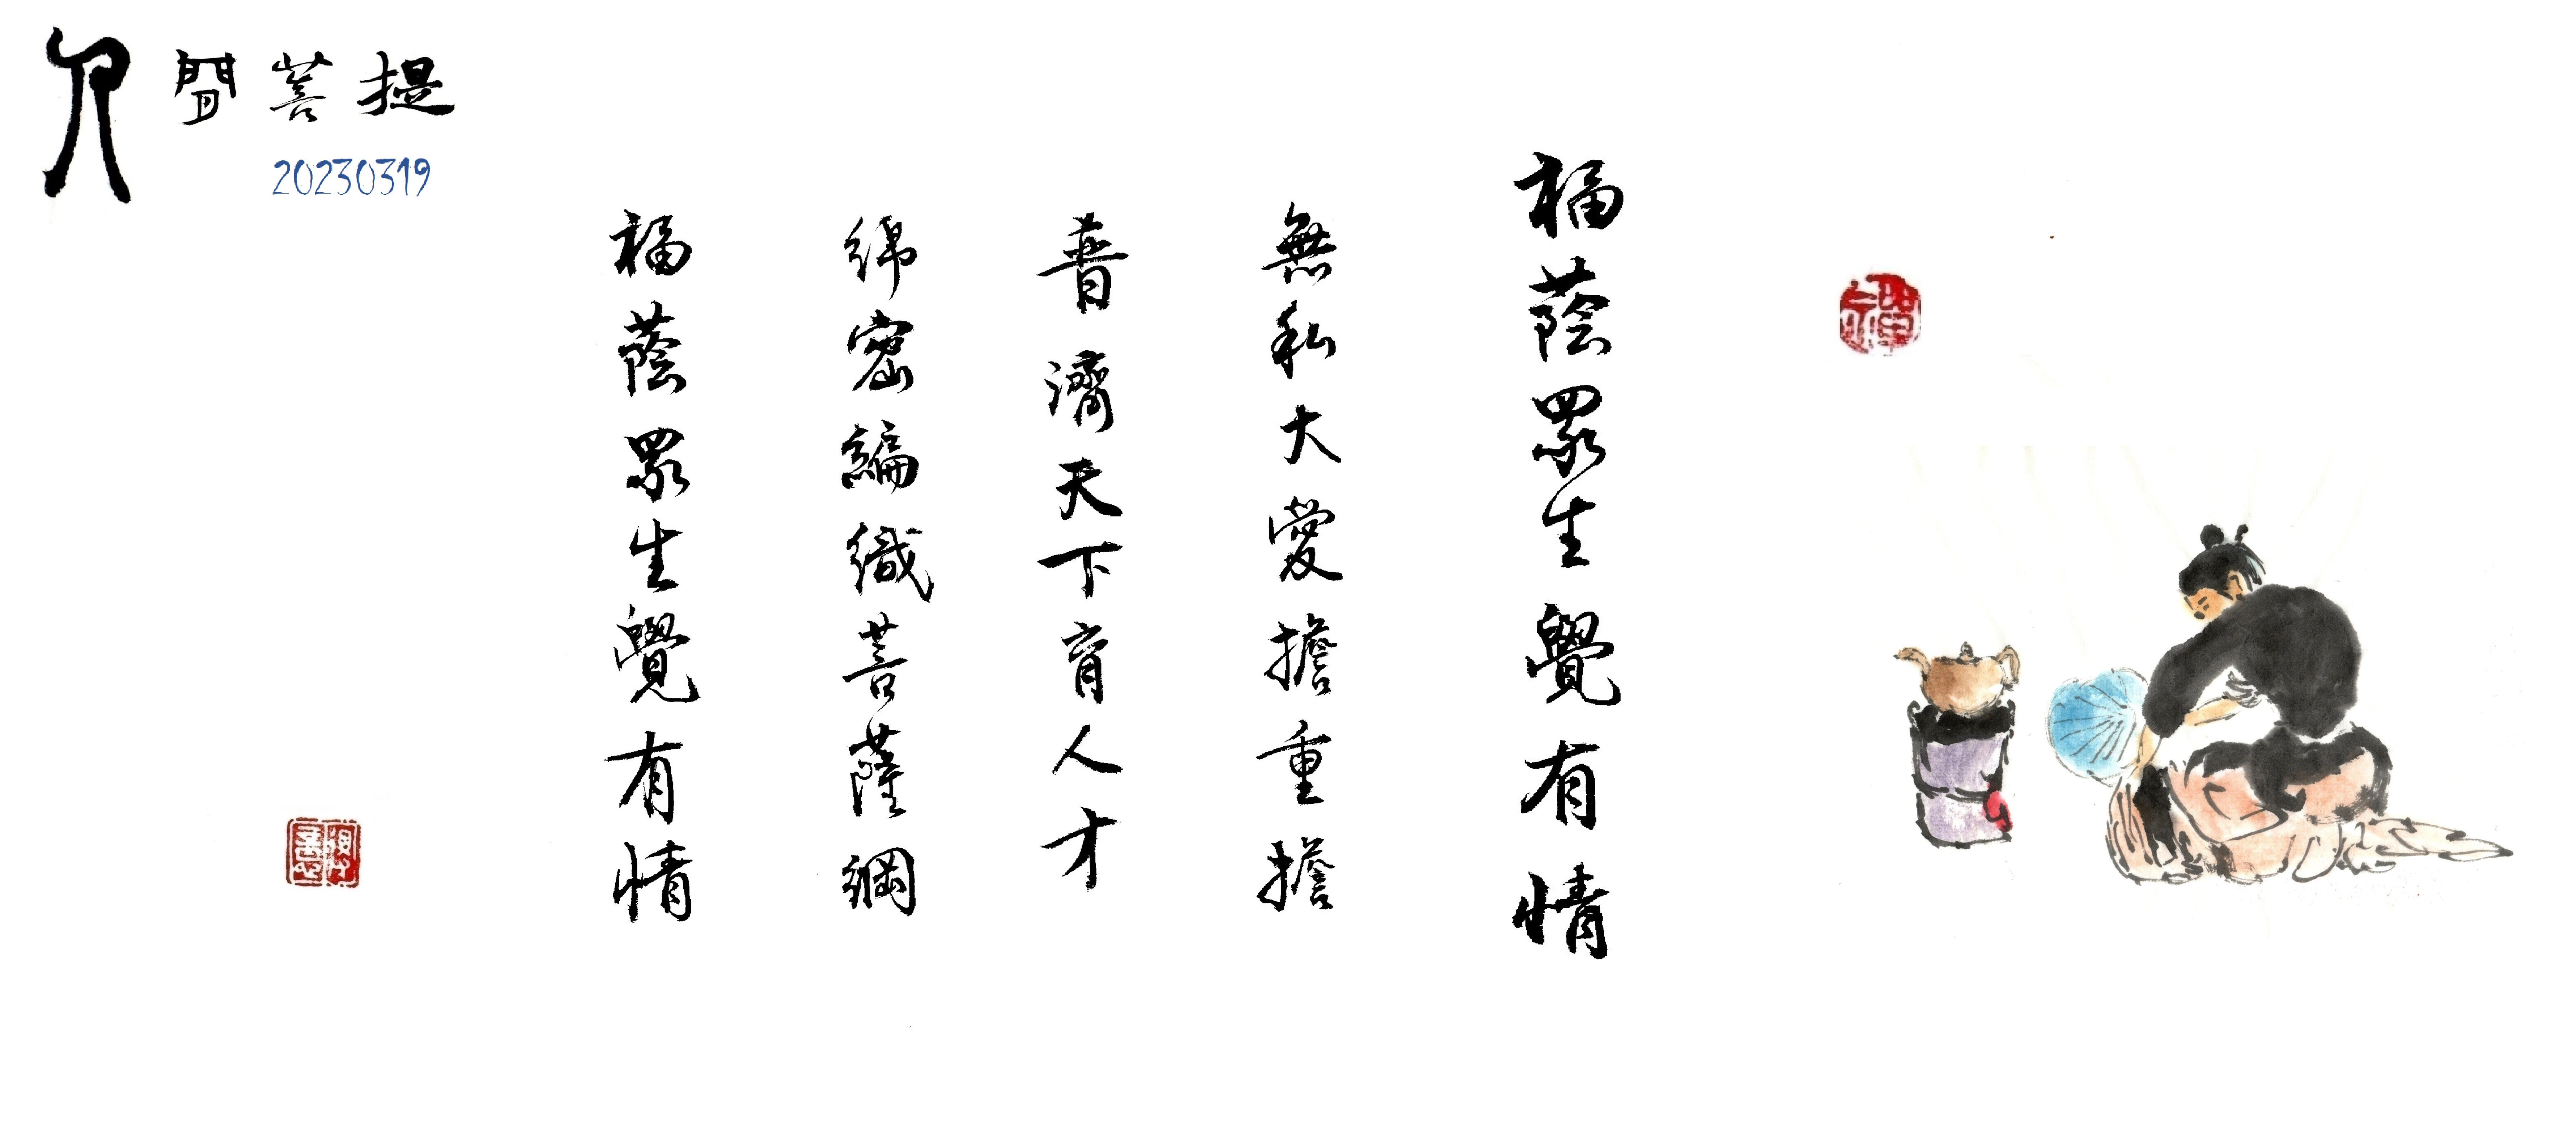 人間菩提
20230319
福蔭眾生覺有情
無私大愛擔重擔
普濟天下育人才
綿密編織菩薩網
福蔭眾生覺有情
禪